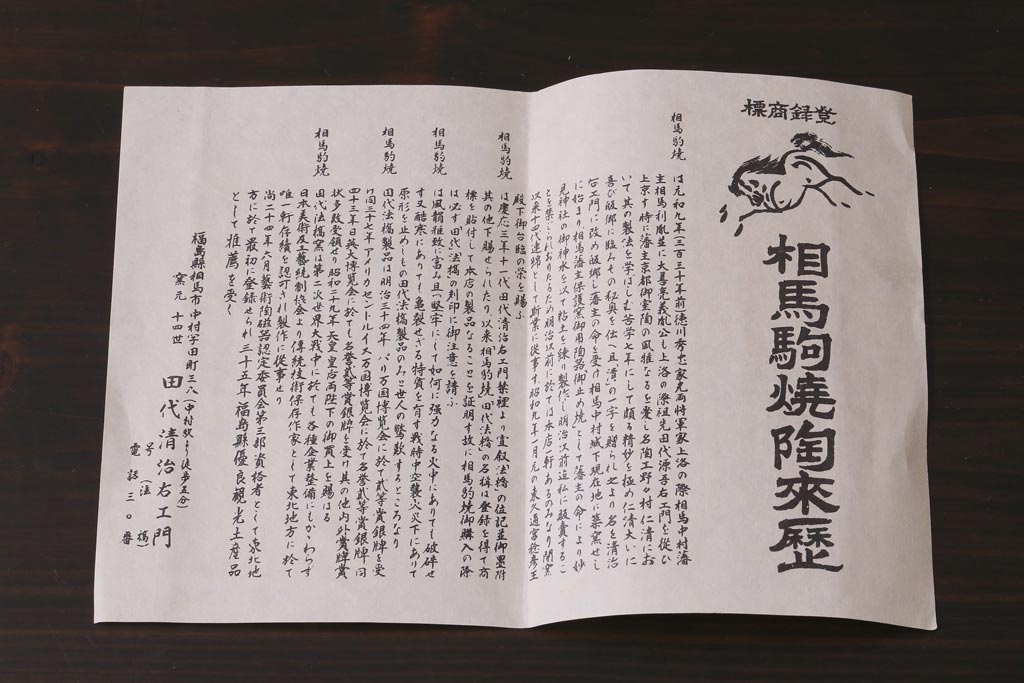 標商録登
相馬駒焼陶来歴
相馬駒焼
は元和九年(三百三十年前)徳川秀忠家光両将軍家上洛の際相馬中村藩
主相馬利胤並に大膳亮義胤公も上洛の際祖先田代源吾右エ門を従ひ
上京す時に藩主京都御室陶の風雅なるを愛し名陶工野々村仁清にお
いて其の製法を学ばしむ苦学七年にして頗る精妙を極め仁清大いに
喜び帰郷に臨みその秘奥を伝へ且「清」の一字を贈られ之より名を清治
右エ門に改め帰郷し藩主の命を受け相馬中村城下現在地に築窯せし
に始まり相馬藩主保護窯御用陶器御止め焼として藩主の命により妙
見神社の御神水を以て粘土を練り製作し明治以前迄私に販賣するこ
とを禁じられおりたるため明治以前に於ては本店一軒あるのみなり開窯
以来十四代連綿として斯業に従事す昭和九年一月元の東久邇宮稔彦王
殿下御台臨の栄を賜ふ
相馬駒焼
は慶応三年十一代田代清治右エ門禁裡より宣叙「法橋」の位記並御墨附
其の他下賜せられたり、以来「相馬駒焼」「田代法橋」の名称は登録を得て商
標を貼付して本店の製品なることを証明す故に相馬駒焼御購入の際
は必ず田代法橋の刻印に御注意を請ふ
相馬駒焼
は風韻雅致に富み且つ堅牢にして如何に強力なる火中にありても破砕せ
す又酷寒にありてし亀裂せざる特質を有す戦時中空襲火災下にありて
原形を止めしもの田代法橋製品のみと世人の驚歎するところなり
相馬駒焼
田代法橋製品は明治三十四年パリ万国博覧会に於て貳等賞銀牌を受
け同三十七年アメリカセントルイス万国博覧会に於て名誉貳等賞銀牌同
四十三年日英大博覧会に於ても名誉貳等賞銀牌を受け其の他内外賞牌賞
状多数受領せり昭和二十九年天皇皇后両陛下の御買上を賜はる
相馬駒焼
田代法橋窯は第二次世界大戦中に於ても各種企業整備にもかゝわらす
日本美術及工藝統制協会より傳統技術保存作家として東北地方に於て
唯一軒存続を認可され製作に従事せり
尚二十四年六月藝術陶磁器認定委員会第三部資格者として東北地
方に於て最初に登録せられ三十五年福島縣優良観光土産品
として推薦を受く
福島縣相馬市中村字田町三八(中村駅より徒歩五分)
窯元十四世 田代清治右エ門
号(法橋)
電話三〇番